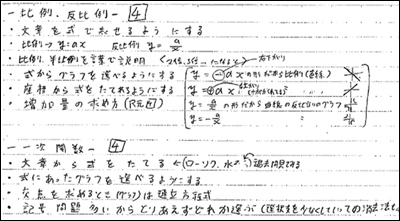 －比例，反比例－ [4]
・文章を式で表せるようにする
・比例→ y=ax 反比例 y=a/x
・比例，反比例を言葉で説明 (2倍，3倍…になると)
・式からグラフを選べるようにする
y = -ax の形だから比例(直線)
・座標から式をたてれるようにする
y = ax
・増加量の求め方
y = a/x の形だから 曲線の反比例のグラフ
y = -a/x
－一次関数－ [4]
・文章から式をたてる ←(ローソク，水 過去問見る
・式にあったグラフを選べるようにする
・交点を求めるとき(グラフ)は連立方程式
・記号問題多いからとりあえずどれか選ぶ (選択支を少なくしていっての消去法も